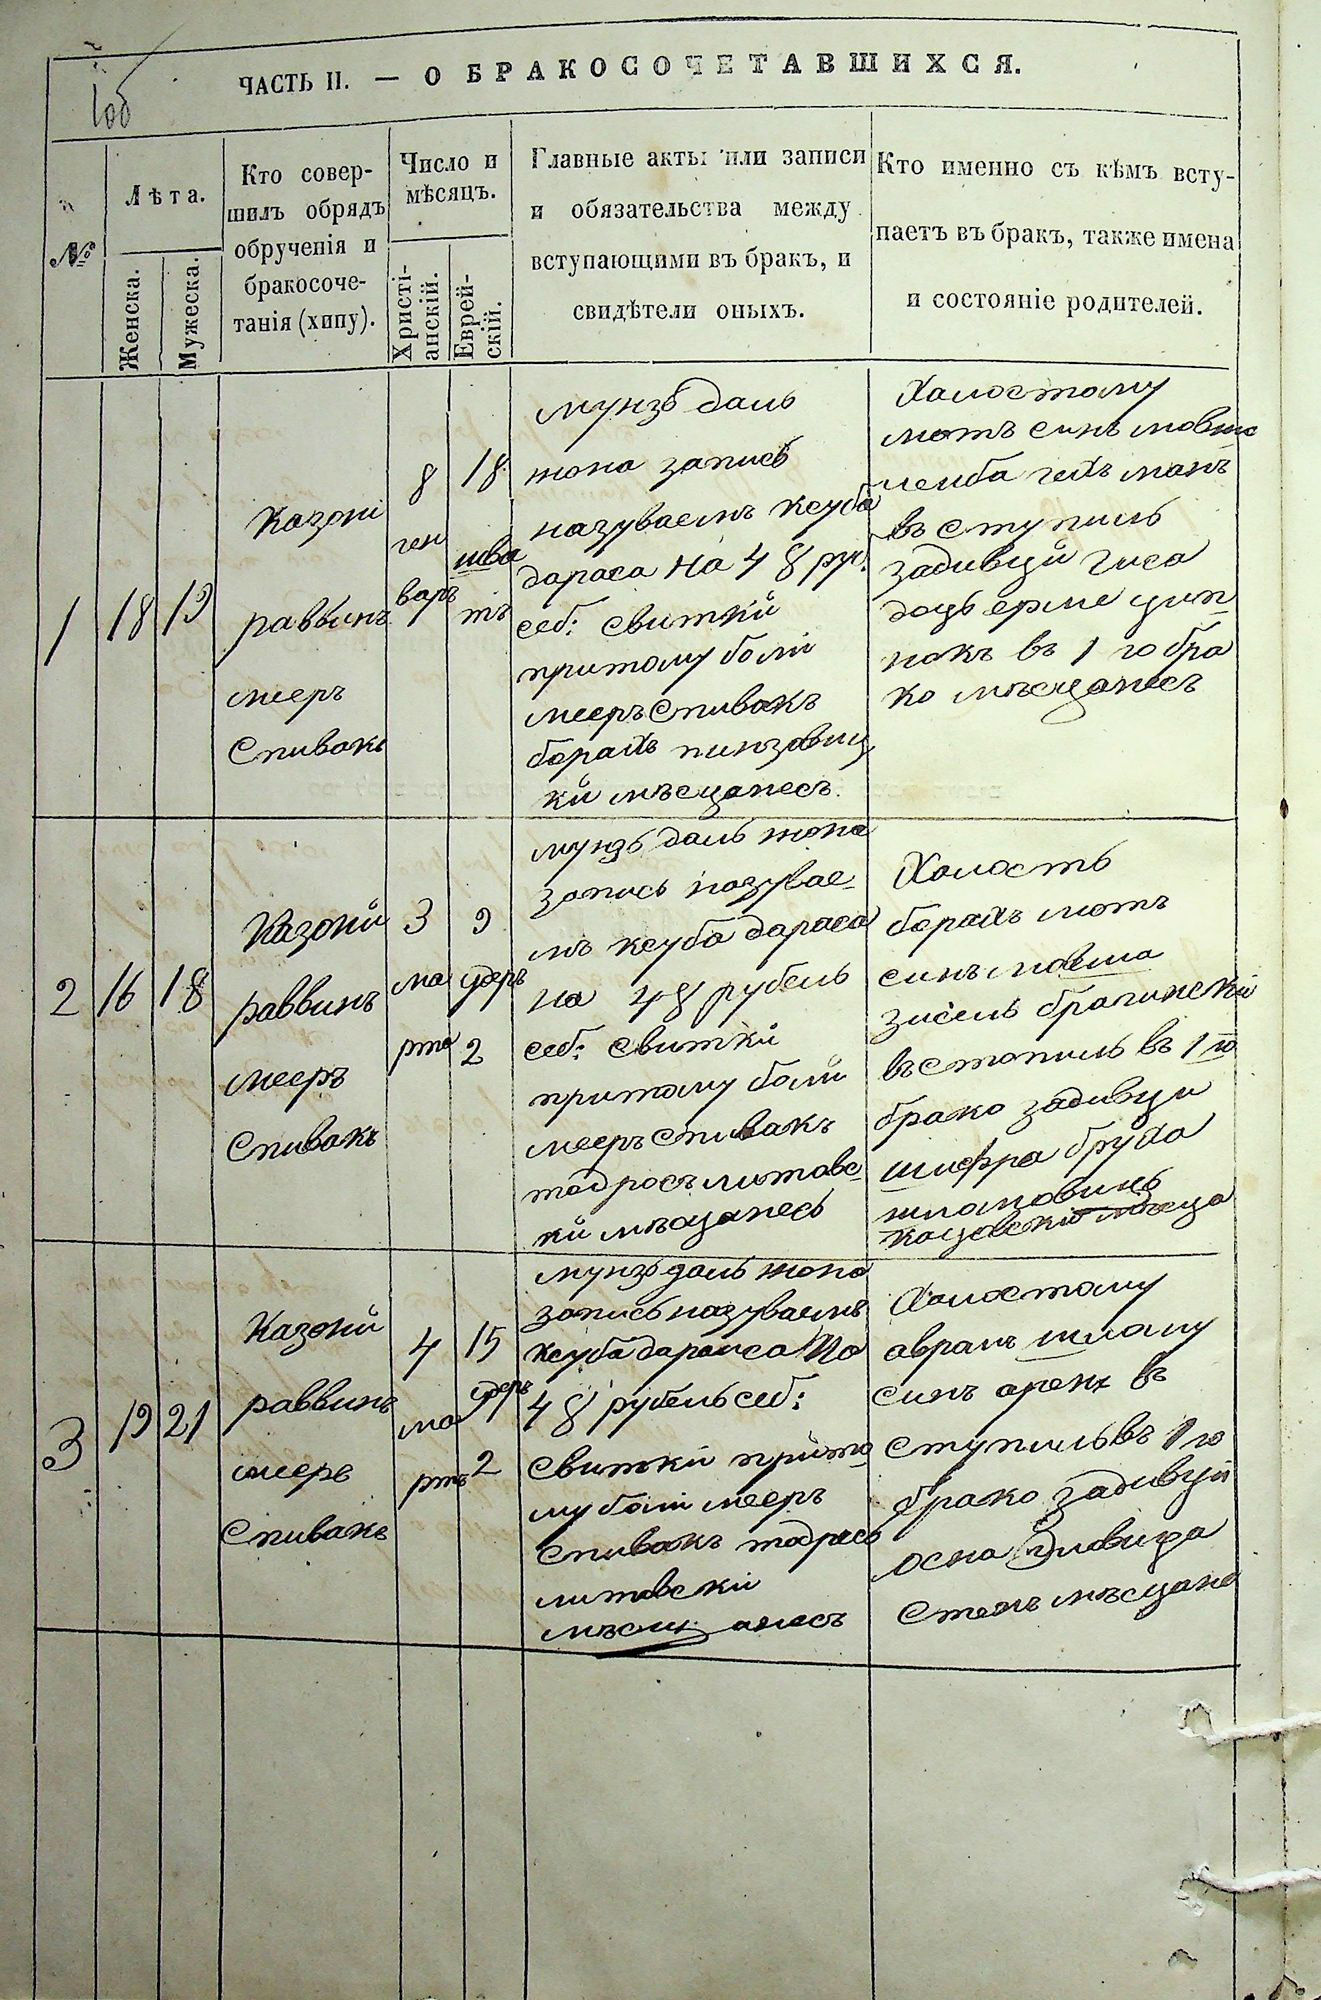 ЧАСТЬ II. — О БРАКОСОЧЕТАВШИХСЯ.
№
Лѣта.
Женска.
Мужеска.
Кто совер-
шилъ обрядъ
обрученія и
бракосоче-
танія (хипу).
Число и
мѣсяцъ.
Христі-
анскій.
Еврей-
скій.
Главные акты или записи
и обязательства между
вступающими въ бракъ, и
свидѣтели оныхъ.
Кто именно съ кѣмъ всту-
паетъ въ бракъ, также имена
и состояніе родителей.
1
18
19
Казони
раввинъ
мееръ
Спивакъ
8
ген
варъ
18
шва
тъ
мунзъ даль
жона запись
назуваемъ ксуба
дараса на 48 руб.
себ: свитки
притому боли
мееръ Спивакъ
борахъ
ки мъсцанесъ
Халостому
мотъ синъ мовша
лейба
въступиль
задивци
доцъ
въ 1 го бра
ко мъсцанесъ
2
16
18
Казони
раввинъ
мееръ
Спивакъ
3
ма
рта
9
удеръ
2
мунзъ даль жона
запись назувае-
мъ ксуба дараса
на 48 рубель
себ: свитки
притому боли
мееръ спивакъ
тодросъ литовс
ки мъсцанесъ
Халость
борахъ мотъ
синъ мовша
зисель брагински
въстопиль въ 1 го
брако задивци
шифра бруха
3
19
21
Казони
раввинъ
меерь
Спивакъ
4
ма
ртъ
15
удеръ
2
мунзъ даль жона
запись назуваемъ
ксуба дараса на
48 рубель себ:
свитки прито
му боли мееръ
спивакъ тодресъ
литовски
мъсцанесъ
Халостому
аврамъ шлому
синъ арон въ
ступиль въ 1 го
брако задивци
мъсцане